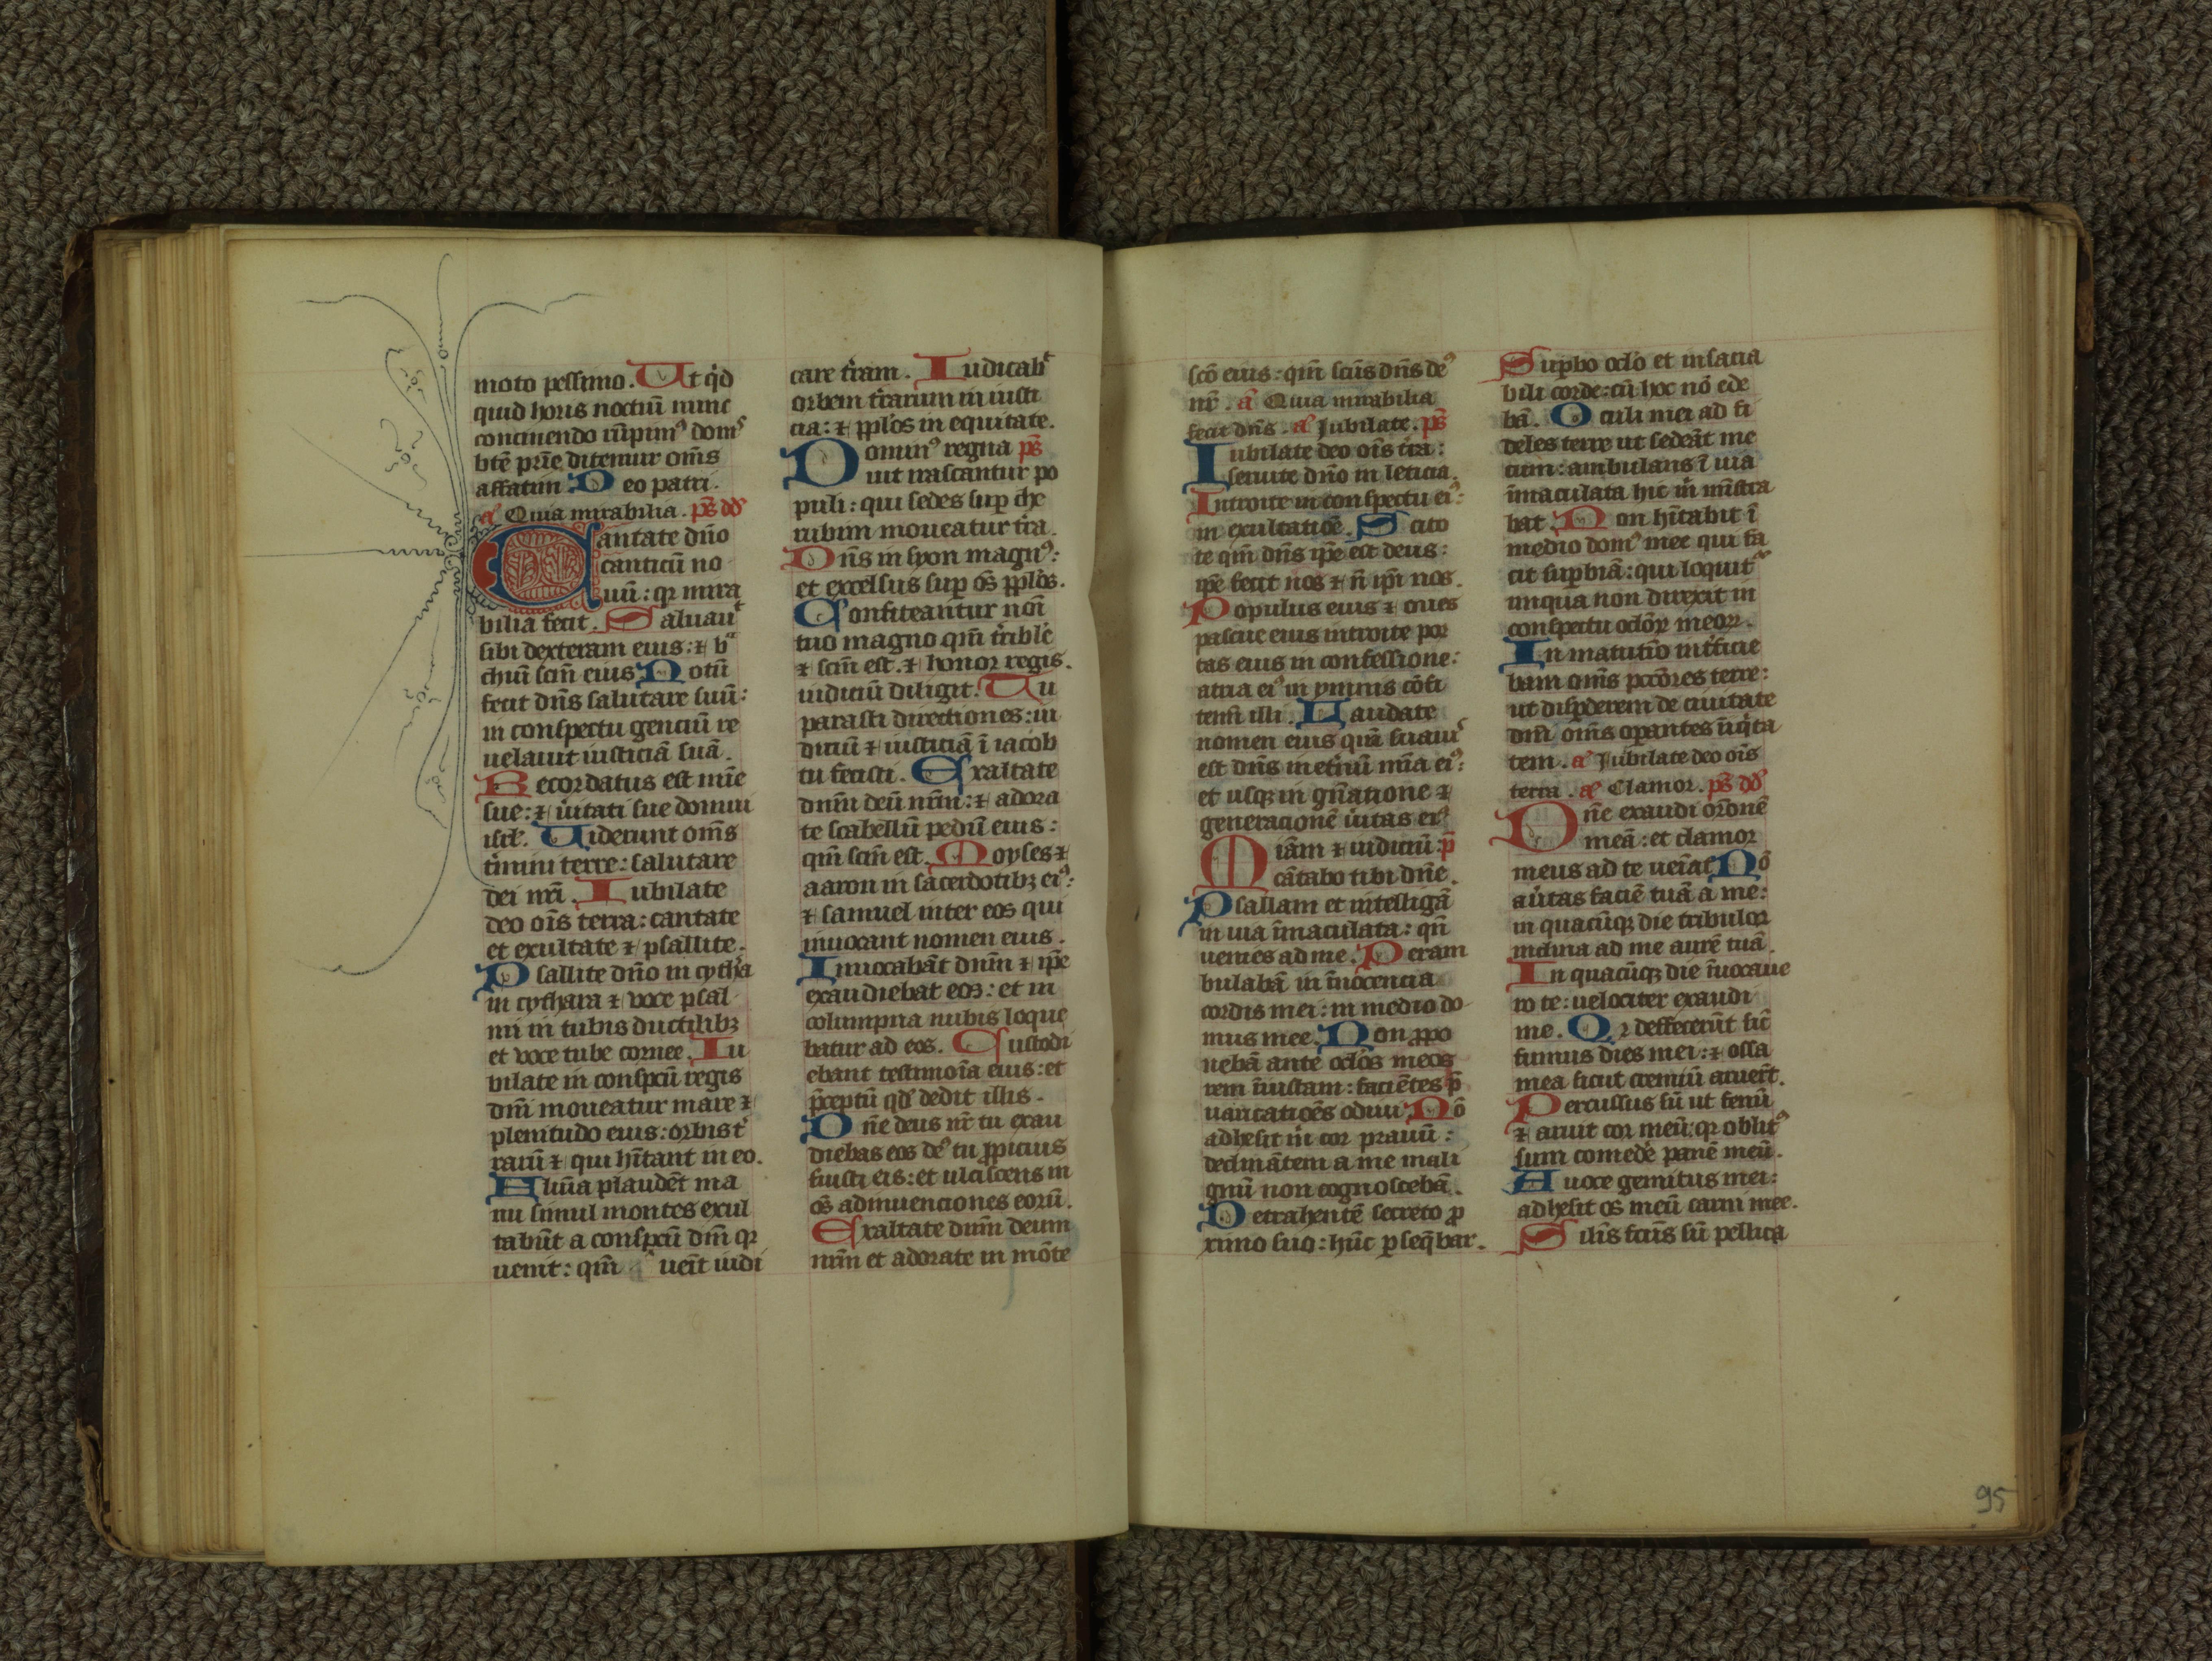 moto pessimo. Ut q̇d
quid horis noctiū nunc
concinendo rūpimꝰ domꝰ
btē prīe ditemur om̄s
affatim Deo patri.
a᷒ Quia mirabilia. ps̄ dd̄
Cantate dn̄o
canticū no
uū: qꝛ mira
bilia fecit. Saluauͭ
sibi dexteram eius: ⁊ bͣ
chiū scm̄ eius Notū
fecit dn̄s salutare suū:
in conspectu genciū re
uelauit iusticiā suā.
Recordatus est mīe
sue: ⁊ uꝰitati sue domui
isrl̄. Uiderunt om̄s
tꝰmini terre: salutare
dei nr̄i. Iubilate
deo oīs terra: cantate
et exultate ⁊ psallite.
Psallite dn̄o in cythꝰa
in cythara ⁊ voce psal
mi in tubis ductilibꝫ
et voce tube cornee. Iu
bilate in conspcū regis
dn̄i moueatur mare ⁊
plenitudo eius: orbis tꝰ
rarū ⁊ qui hītant in eo.
Flūīa plaudēt ma
nu simul montes exul
tabūt a conspcū dn̄i qꝛ
uenit: qm̄ ueīt iudi
care tꝰram. Iudicabͭ
orbem tꝰrarum in iusti
cia: ⁊ ppl̓os in equitate.
Dominꝰ regna ps̄
uit irascantur po
puli: qui sedes suꝑ che
rubim moueatur tꝰra.
Dn̄s in syon magnꝰ:
et excelsus suꝑ os̄ ppl̓os.
Confiteantur noī
tuo magno qm̄ tꝰribl̓e
⁊ scm̄ est. ⁊ honor regis
iudiciū diligit. Tu
parasti directiones: iu
diciū ⁊ iusticiā ī iacob
tu fecisti. Exaltate
dnm̄ deū nrm̄: ⁊ adora
te scabellū pedū eius:
qm̄ scm̄ est. Moyses ⁊
aaron in sacerdotibꝫ eiꝰ:
⁊ samuel inter eos qui
inuocant nomen eius.
Inuocabāt dnm̄ ⁊ ip̄e
exaudiebat eos: et in
columpna nubis loque
batur ad eos. Custodi
ebant testimoīa eius: et
p̄ceptū qd̄ dedit illis.
Dn̄e deus nr̄ tu exau
diebas eos deꝰ tu ꝓpicius
fuisti eis: et ulciscens in
os̄ adinuenciones eorū.
Exaltate dnm̄ deum
nrm̄ et adorate in mōte
scō eius: qm̄ scūs dn̄s deꝰ
nr̄. a᷒ Quia mirabilia
fecit dn̄s. a᷒ Jubilate. ps̄
Iubilate deo oīs tꝰra:
seruite dn̄o in leticia.
Introite in conspectu eiꝰ:
in exultatiōe. Scito
te qm̄ dn̄s ip̄e est deus:
ip̄e fecit nos ⁊ n̄ ip̄i nos.
Populus eius ⁊ oues
pascue eius introite por
tas eius in confessione:
atria eiꝰ in ymnis cōfi
temī illi. Laudate
nomen eius qm̄ suauiꝰ
est dn̄s in etꝰnū mīa eiꝰ:
et usqꝫ in gn̄atione ⁊
generacionē uꝰitas eiꝰ.
Miām ⁊ iudiciū: ps̄
cātabo tibi dn̄e.
Psallam et intelligā
in uia īmaculata: qn̄
uenies ad me. Peram
bulabā in īnocencia
cordis mei: in medio do
mus mee. Non ꝓpo
nebā ante ocl̓os meos
rem īiustam: faciētes p̄
uaricatiōēs odiui Nō
adhesit m̄ cor prauū:
declinātem a me mali
gnū non cognoscebā.
Detrahentē secreto ꝓ
ximo suo: hūc ꝑseq̄bar.
Suꝑbo ocl̓o et insacia
bili corde: cū hoc nō ede
bā. Oculi mei ad fi
deles terre ut sedeāt me
cum: ambulans ī uia
īmaculata hic m̄ mīstra
bat. Non hītabit ī
medio domꝰ mee qui fa
cit suꝑbiā: qui loquit᷑
iniqua non direxit in
conspectu ocl̓oꝝ meoꝝ.
In matutīo intꝰficie
bam om̄s pccōres terre:
ut disꝑderem de ciuitate
dn̄i om̄s oꝑantes īiqꝰta
tem. a᷒ Jubilate deo oīs
terra. a᷒ Clamor. ps̄ dd̄
Dn̄e exaudi orōnē
meā: et clamor
meus ad te ueīat Nō
auꝰtas faciē tuā a me:
in quacūqꝫ die tribulor
inclina ad me aurē tuā.
In quacūqꝫ die īuocaue
ro te: uelociter exaudi
me. Qꝛ deffecerūt sic̄
fumus dies mei: ⁊ ossa
mea sicut cremiū aruert̄.
Percussus sū ut fenū
⁊ aruit cor meū: qꝛ oblitꝰ
sum comedeꝰ panē meū.
A uoce gemitus mei:
adhesit os̄ meū carni mee.
Silīs fcūs sū pellica
95